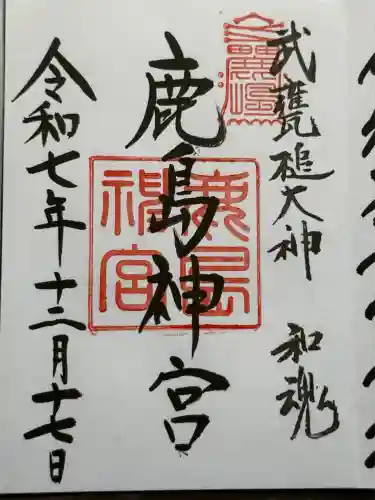 武甕槌大神 和魂
鹿島神宮
鹿島
神宮
令和七年十二月十七日